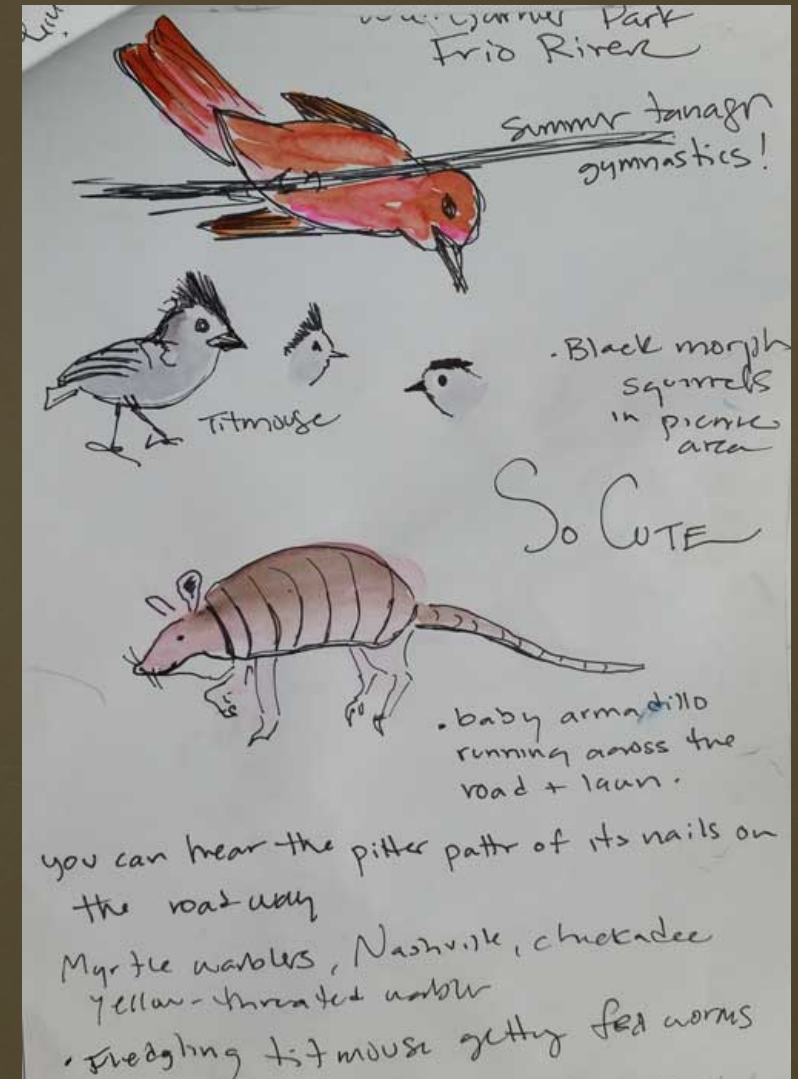 Garner Park
Frio River
Summr tanagr
gymnastics!
Titmouse
• Black morph
squirrels
in picnic
area
So CUTE
• baby armadillo
running across the
road + laun.
you can hear the pitter pattr of its nails on
the roadway
Myrtle warblers, Nashville, chickadee
yellow-throated warblr
• Fledgling titmouse getting fed worms